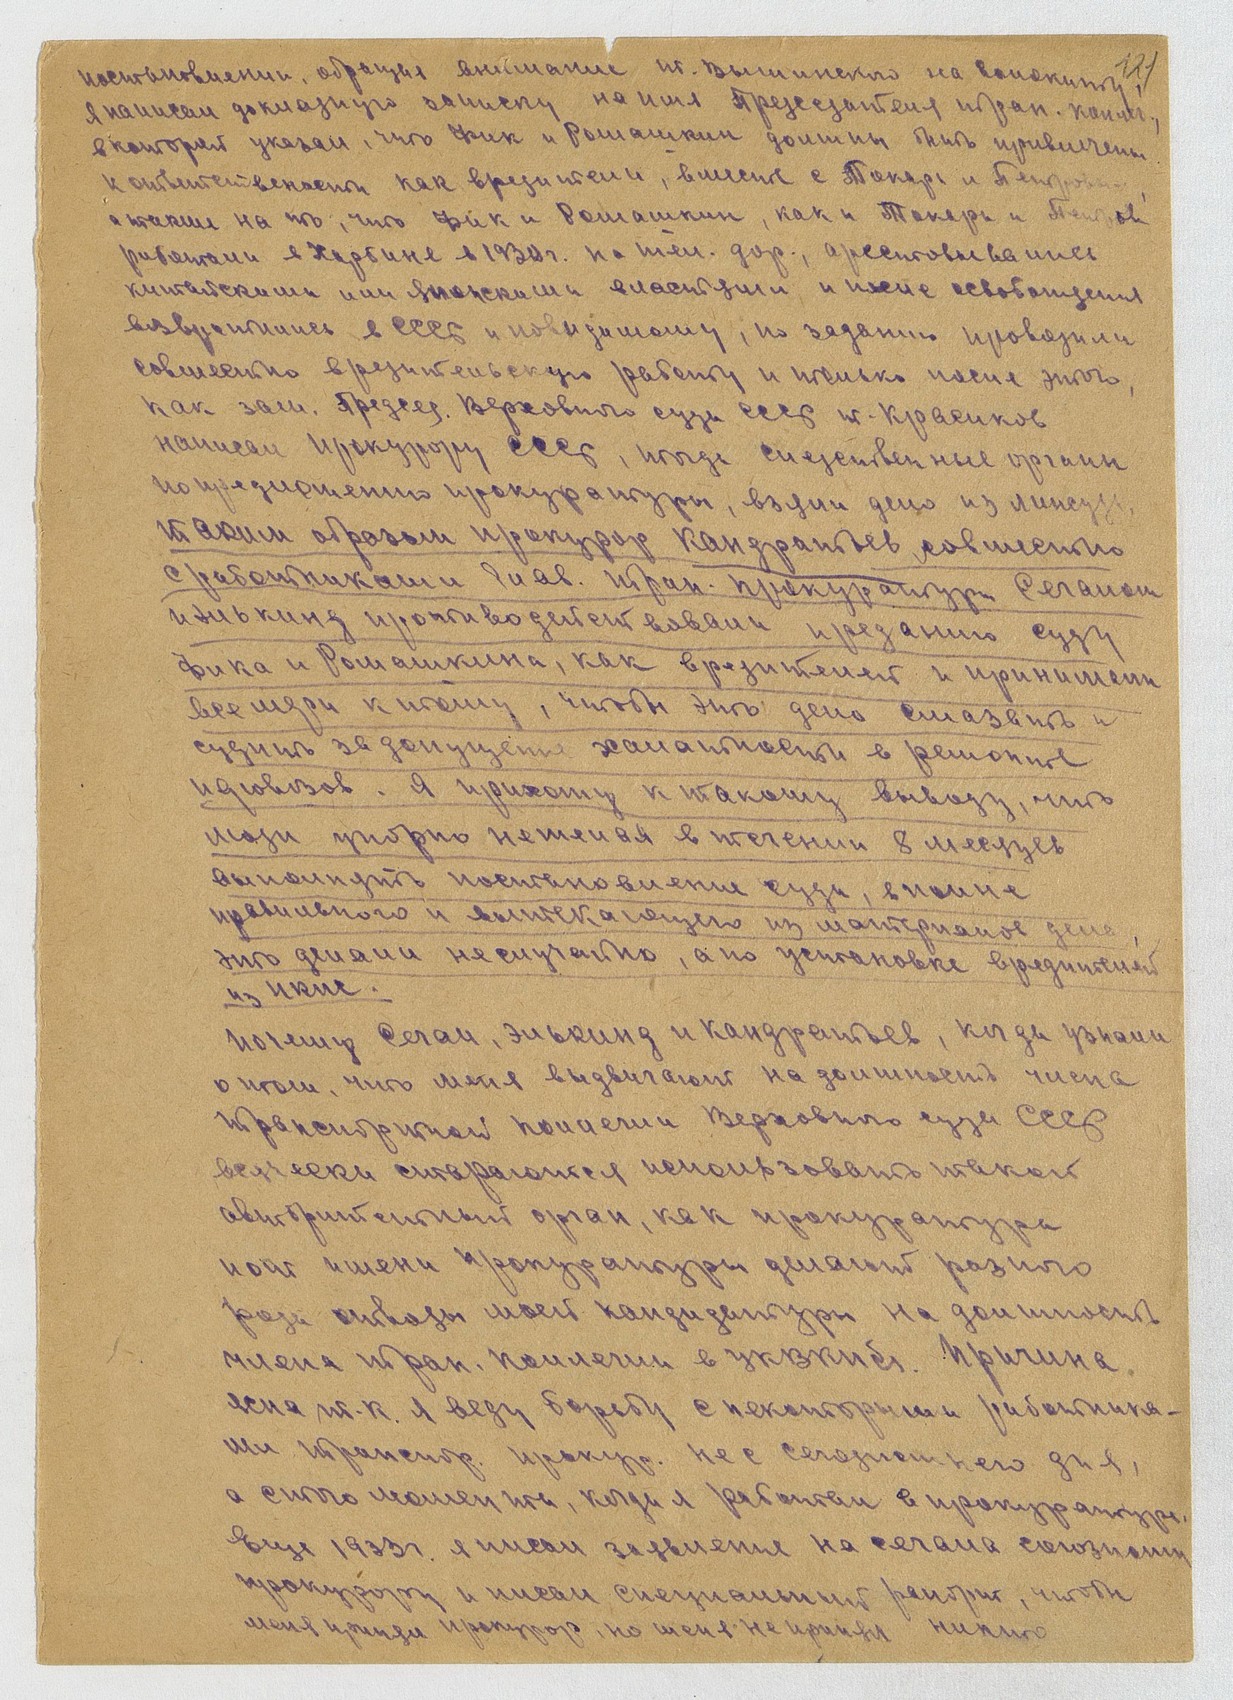 121
постановлении, обращая внимание т. Вышинского на волокиту,
я написал докладную записку на имя Председателя тран. коллег.,
в которой указал, что Фик и Ромашкин должны быть привлечены
к ответственности как вредители, вместе с Токарь и Петровым,
а также на то, что Фик и Ромашкин, как и Токарь и Петров
работали в Харбине в 1930г. на жел. дор., арестовывались
китайскими или японскими властями и после освобождения
возвратились в СССР и повидимому, по заданию проводили
совместно вредительскую работу и только после этого,
как зам. Председ. Верховного суда СССР т. Красиков
написал Прокурору СССР, тогда следственные органы
по предложению прокуратуры, взяли дело из линсуда,
таким образом прокурор Кандратьев, совместно
с работниками Глав. тран. прокуратуры Сегалом
и Элькинд противодействовали преданию суду
Фика и Ромашкина, как вредителей и принимали
все меры к тому, чтобы это дело смазать и
судить за допущение халатности в ремонте
паровозов. Я прихожу к такому выводу, что
люди упорно не желая в течении 8 месяцев
выполнять постановление суда, вполне
правильного и вытекающего из материалов дела,
это делали неслучайно, а по установке вредителей
из НКПС.
Почему Сегал, Элькинд и Кандратьев, когда узнали
о том, что меня выдвигают на должность члена
транспортной коллегии Верховного суда СССР
всячески стараются использовать такой
авторитетный орган, как прокуратура
и от имени Прокуратуры делают разного
рода отводы моей кандидатуры на должность
члена тран. коллегии в УКВКПб). Причина
ясна т.к. я веду борьбу с некоторыми работника-
ми транспор. прокур. не с сегодняшнего дня,
а с того момента, когда я работал в прокуратуре.
Еще 1933г. я писал заявление на Сегала союзному
прокурору и писал специальный рапорт, чтобы
меня принял прокурор, но меня не принял никто